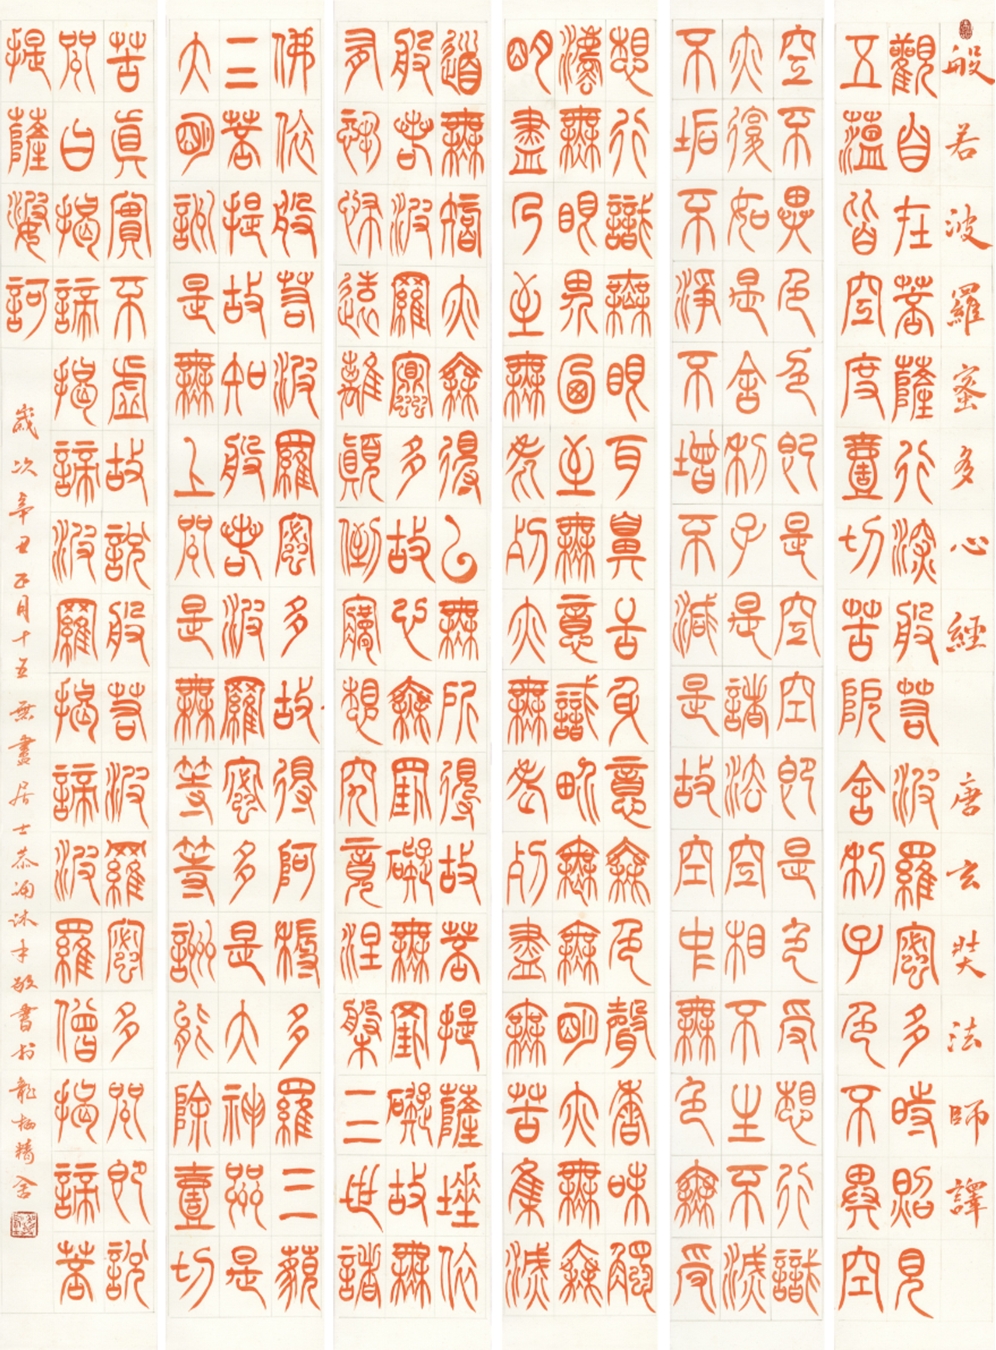 般若波羅蜜多心經 唐玄奘法師譯
觀自在菩薩行深般若波羅蜜多時照見
五蘊皆空度壹切苦阨舍利子色不異空
空不異色色即是空空即是色受想行識
亦復如是舍利子是諸法空相不生不滅
不垢不淨不增不減是故空中無色無受
想行識無眼耳鼻舌身意無色聲香味觸
法無眼界乃至無意識界無無明亦無無
明盡乃至無老死亦無老死盡無苦集滅
道無智亦無得以無所得故菩提薩埵依
般若波羅蜜多故心無罣礙無罣礙故無
有恐怖遠離顛倒夢想究竟涅槃三世諸
佛依般若波羅蜜多故得阿耨多羅三藐
三菩提故知般若波羅蜜多是大神咒是
大明咒是無上咒是無等等咒能除壹切
苦真實不虛故說般若波羅蜜多咒即說
咒曰揭諦揭諦波羅揭諦波羅僧揭諦菩
提薩婆訶
歲次辛丑月十五無盡居士恭沐手敬書於龍栖精舍